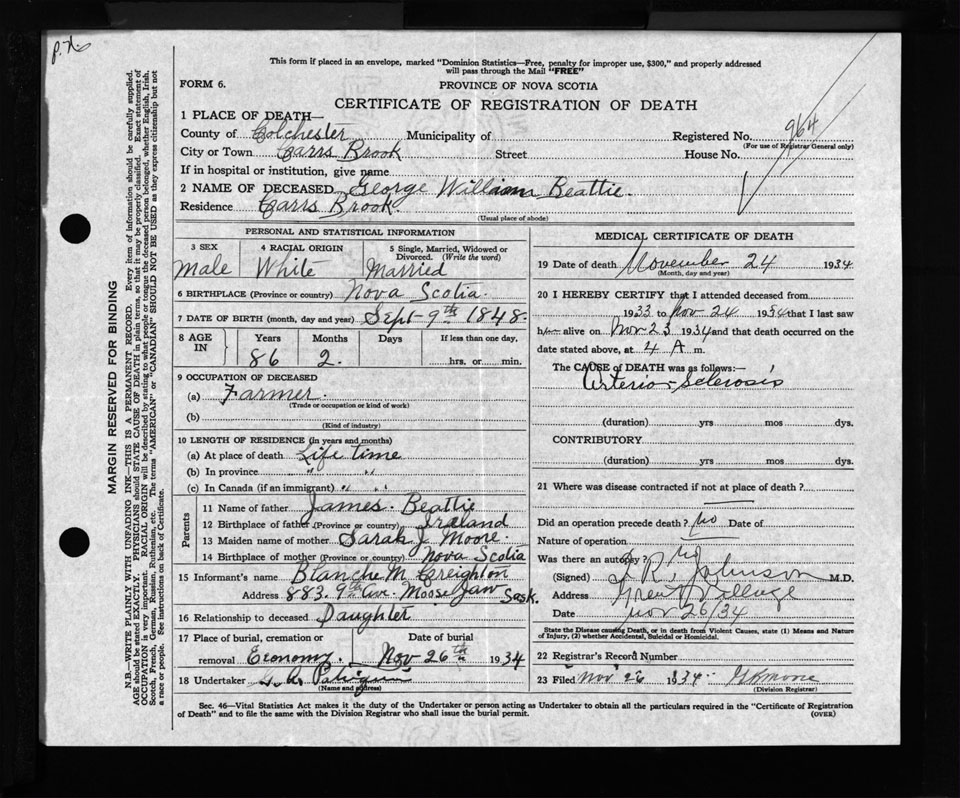 p.x.
This form if placed in an envelope, marked "Dominion Statistics—Free, penalty for improper use, $300," and properly addressed
will pass through the Mail "FREE"
FORM 6.
PROVINCE OF NOVA SCOTIA
CERTIFICATE OF REGISTRATION OF DEATH
1 PLACE OF DEATH—
County of Colchester Municipality of Registered No. 964
(For use of Registrar General only)
City or Town Carrs Brook Street House No.
If in hospital or institution, give name
2 NAME OF DECEASED George William Beattie.
Residence Carrs Brook.
(Usual place of abode)
PERSONAL AND STATISTICAL INFORMATION
3 SEX 4 RACIAL ORIGIN 5 Single, Married, Widowed or Divorced. (Write the word)
Male White Married
6 BIRTHPLACE (Province or country) Nova Scotia.
7 DATE OF BIRTH (month, day and year) Sept 9th 1848.
8 AGE IN Years Months Days If less than one day,
86 2. hrs. or min.
9 OCCUPATION OF DECEASED
(a) Farmer.
(Trade or occupation or kind of work)
(b)
(Kind of industry)
10 LENGTH OF RESIDENCE (in years and months)
(a) At place of death Life time
(b) In province " "
(c) In Canada (if an immigrant) " "
Parents
11 Name of father James Beattie
12 Birthplace of father (Province or country) Ireland
13 Maiden name of mother Sarah J Moore.
14 Birthplace of mother (Province or country) Nova Scotia
15 Informant's name Blanche M. Creighton
Address 883. 9th Av. Moose Jaw Sask.
16 Relationship to deceased Daughter
17 Place of burial, cremation or Date of burial
removal Economy. Nov 26th 1934
18 Undertaker
(Name and address)
MEDICAL CERTIFICATE OF DEATH
19 Date of death November 24 1934
(Month, day and year)
20 I HEREBY CERTIFY that I attended deceased from
1933 to Nov 24 1934 that I last saw
h alive on Nov 23 1934 and that death occurred on
date stated above, at 4 A m.
The CAUSE of DEATH was as follows:—
Arterior Sclerosis
(duration) yrs mos dys.
CONTRIBUTORY
(duration) yrs mos dys.
21 Where was disease contracted if not at place of death?
Did an operation precede death? No Date of
Nature of operation
Was there an autopsy? No
(Signed) Johnson M.D.
Address Great Village
Date Nov 26/34
State the Disease causing Death, or in death from Violent Causes, state (1) Means and Nature of Injury, (2) whether Accidental, Suicidal or Homicidal.
22 Registrar's Record Number
23 Filed Nov 26 1934
(Division Registrar)
Sec. 46—Vital Statistics Act makes it the duty of the Undertaker or person acting as Undertaker to obtain all the particulars required in the "Certificate of Registration
of Death" and to file the same with the Division Registrar who shall issue the burial permit. (OVER)
MARGIN RESERVED FOR BINDING
N.B.—WRITE PLAINLY WITH UNFADING INK—THIS IS A PERMANENT RECORD. Every item of information should be carefully supplied.
AGE should be stated EXACTLY. PHYSICIANS should STATE CAUSE OF DEATH in plain terms, so that it may be properly classified. Exact statement of
OCCUPATION is very important. RACIAL ORIGIN will be described by stating to what people or tongue the deceased person belonged, whether English, Irish,
Scotch, French, German, Russian, Ruthenian, etc. The terms "AMERICAN" or "CANADIAN" SHOULD NOT BE USED as they express citizenship but not
a race or people. See instructions on back of Certificate.